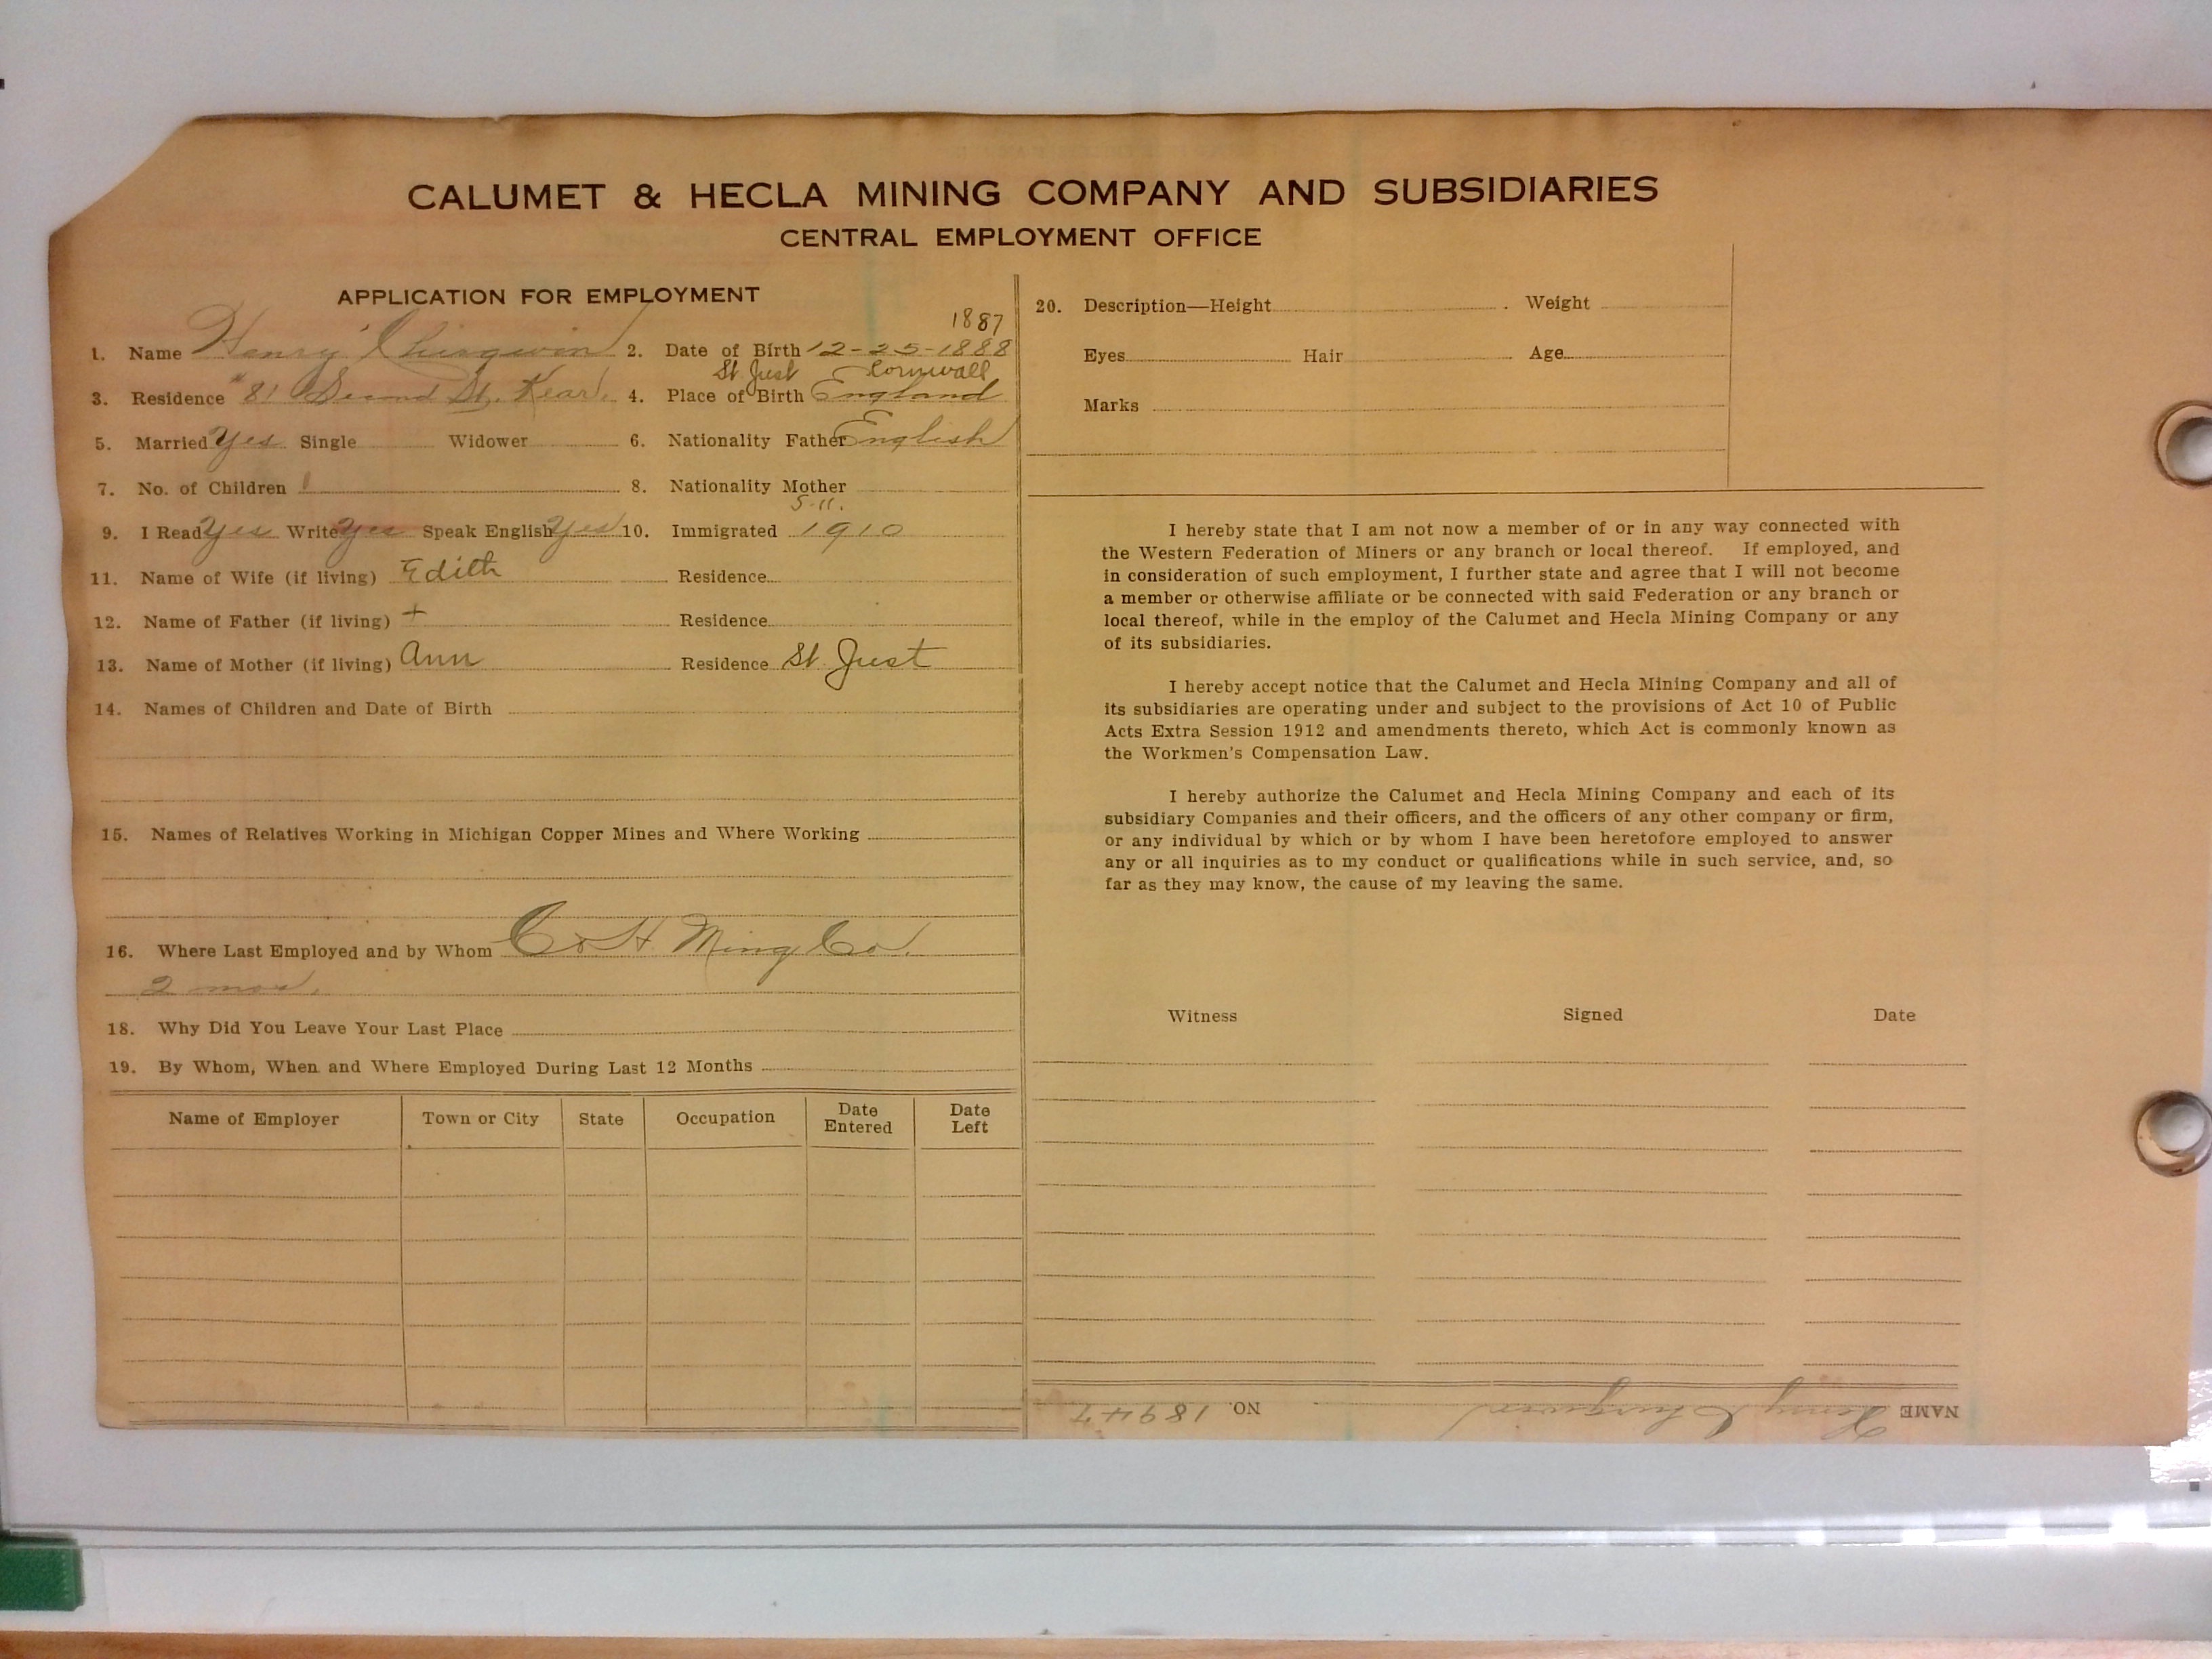 CALUMET & HECLA MINING COMPANY AND SUBSIDIARIES
CENTRAL EMPLOYMENT OFFICE
APPLICATION FOR EMPLOYMENT
1887
1. Name Henry Chirgwin 2. Date of Birth 12-25-1888
St Just Cornwall
3. Residence #81 Second St. Kear. 4. Place of Birth England
5. Married Yes Single Widower 6. Nationality Father English
7. No. of Children 1 8. Nationality Mother
5-11.
9. I Read Yes Write Yes Speak English Yes 10. Immigrated 1910
11. Name of Wife (if living) Edith Residence
12. Name of Father (if living) + Residence
13. Name of Mother (if living) Ann Residence St. Just
14. Names of Children and Date of Birth
15. Names of Relatives Working in Michigan Copper Mines and Where Working
16. Where Last Employed and by Whom C & H Ming Co.
2 mos.
18. Why Did You Leave Your Last Place
19. By Whom, When and Where Employed During Last 12 Months
Name of Employer Town or City State Occupation Date Entered Date Left
20. Description—Height Weight
Eyes Hair Age
Marks
I hereby state that I am not now a member of or in any way connected with
the Western Federation of Miners or any branch or local thereof. If employed, and
in consideration of such employment, I further state and agree that I will not become
a member or otherwise affiliate or be connected with said Federation or any branch or
local thereof, while in the employ of the Calumet and Hecla Mining Company or any
of its subsidiaries.
I hereby accept notice that the Calumet and Hecla Mining Company and all of
its subsidiaries are operating under and subject to the provisions of Act 10 of Public
Acts Extra Session 1912 and amendments thereto, which Act is commonly known as
the Workmen's Compensation Law.
I hereby authorize the Calumet and Hecla Mining Company and each of its
subsidiary Companies and their officers, and the officers of any other company or firm,
or any individual by which or by whom I have been heretofore employed to answer
any or all inquiries as to my conduct or qualifications while in such service, and, so
far as they may know, the cause of my leaving the same.
Witness Signed Date
NAME Henry Chirgwin NO. 18947